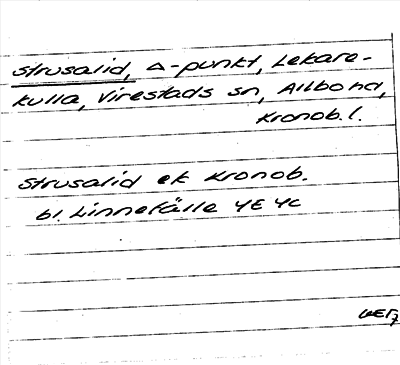 Strusalid, △-punkt, Lekare-
kulla, Virestads sn, Allbo hd,
Kronob. l.
Strusalid ek Kronob.
bl. Linnefälle 4E 4c